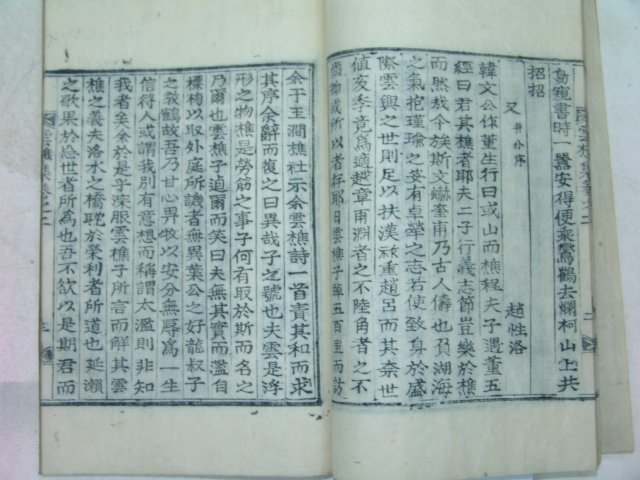 窺書時一鬨安得便乘鸞鶴去爛柯山上共
招招
又 幷小序 趙性洛
韓文公作董生行曰或山而樵程夫子遇董五
經曰君其樵者耶夫二子行義志節豈樂於樵
而然哉今族斯文爀奎甫乃古人儔也負湖海
之氣抱瑾瑜之姿有卓犖之志若使致身於盛
際雲興之世則足以扶漢鼎重趙呂而其奈世
値亥季竟為適越章甫淵者之不陸角者之不
齒物或所以者存耶日雲樵子踔五百里而訪
雲樵集卷之二
二
余于王澗樵社示余雲樵詩一首責其和而求
其序余辭而復之曰異哉子之號也夫雲是浮
形之物樵是勞筋之事子何有取於斯而名之
乃爾也雲樵子逌爾而笑曰夫無其實而濫自
標榜以取外庭所譏者無異葉公之好龍叔子
之敎鶴故吾乃甘心畀牧以安分無辱為一生
信符人或謂我別有意想而稱謂太濫則非知
我者矣余於是乎深服雲樵子所言而解其雲
樵之義夫洛水之橋耽於榮利者所道也延瀨
之歌果於忘世者所為也吾不欲以是期君而
雲樵集卷之二
三